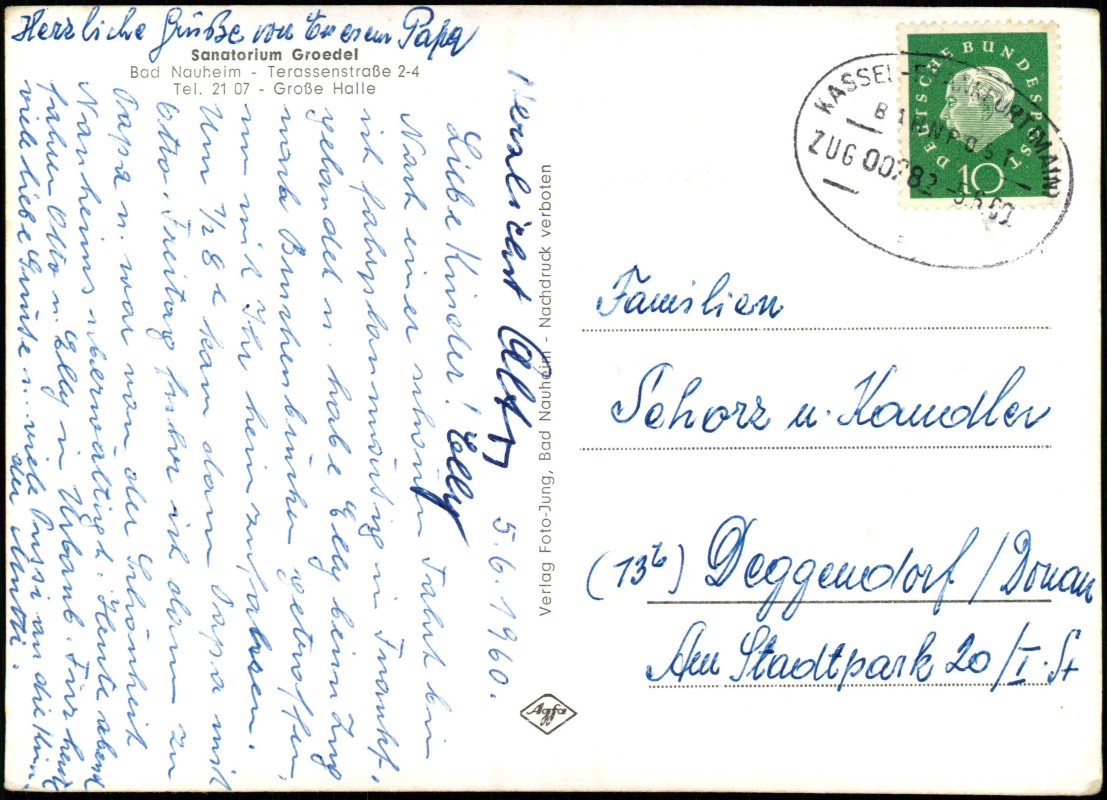 Herzliche Grüße von Eurem Papa
Sanatorium Groedel
Bad Nauheim - Terassenstraße 2-4
Tel. 21 07 - Große Halle
5.6.1960.
Liebe Kinder!
Nach einer schönen Fahrt bin
ich fahrplanmässig in Frankf.
gelandet u. habe Elly beim Zug
nach getroffen,
um mit Ihr heim zu fahren.
Um 1/2 8 kam dann Papa mit
Otto, Freitag fuhr ich dann zu
Papa u. war von der Schönheit
Nauheims überwältigt. Heute abend
fahren Otto u. Elly in Urlaub. Für heute
viele liebe Grüsse u. viele Pussi an die Kin
der Mutti.
Herzlichst
Elly
Verlag Foto-Jung, Bad Nauheim - Nachdruck verboten
Agfa
DEUTSCHE BUNDESPOST
10
KASSEL-FRANKFURT (MAIN)
BAHNPOST
ZUG 00782 -5.6.60
Familien
Schorz u. Kandler
(13b) Deggendorf / Donau
Am Stadtpark 20/I. St